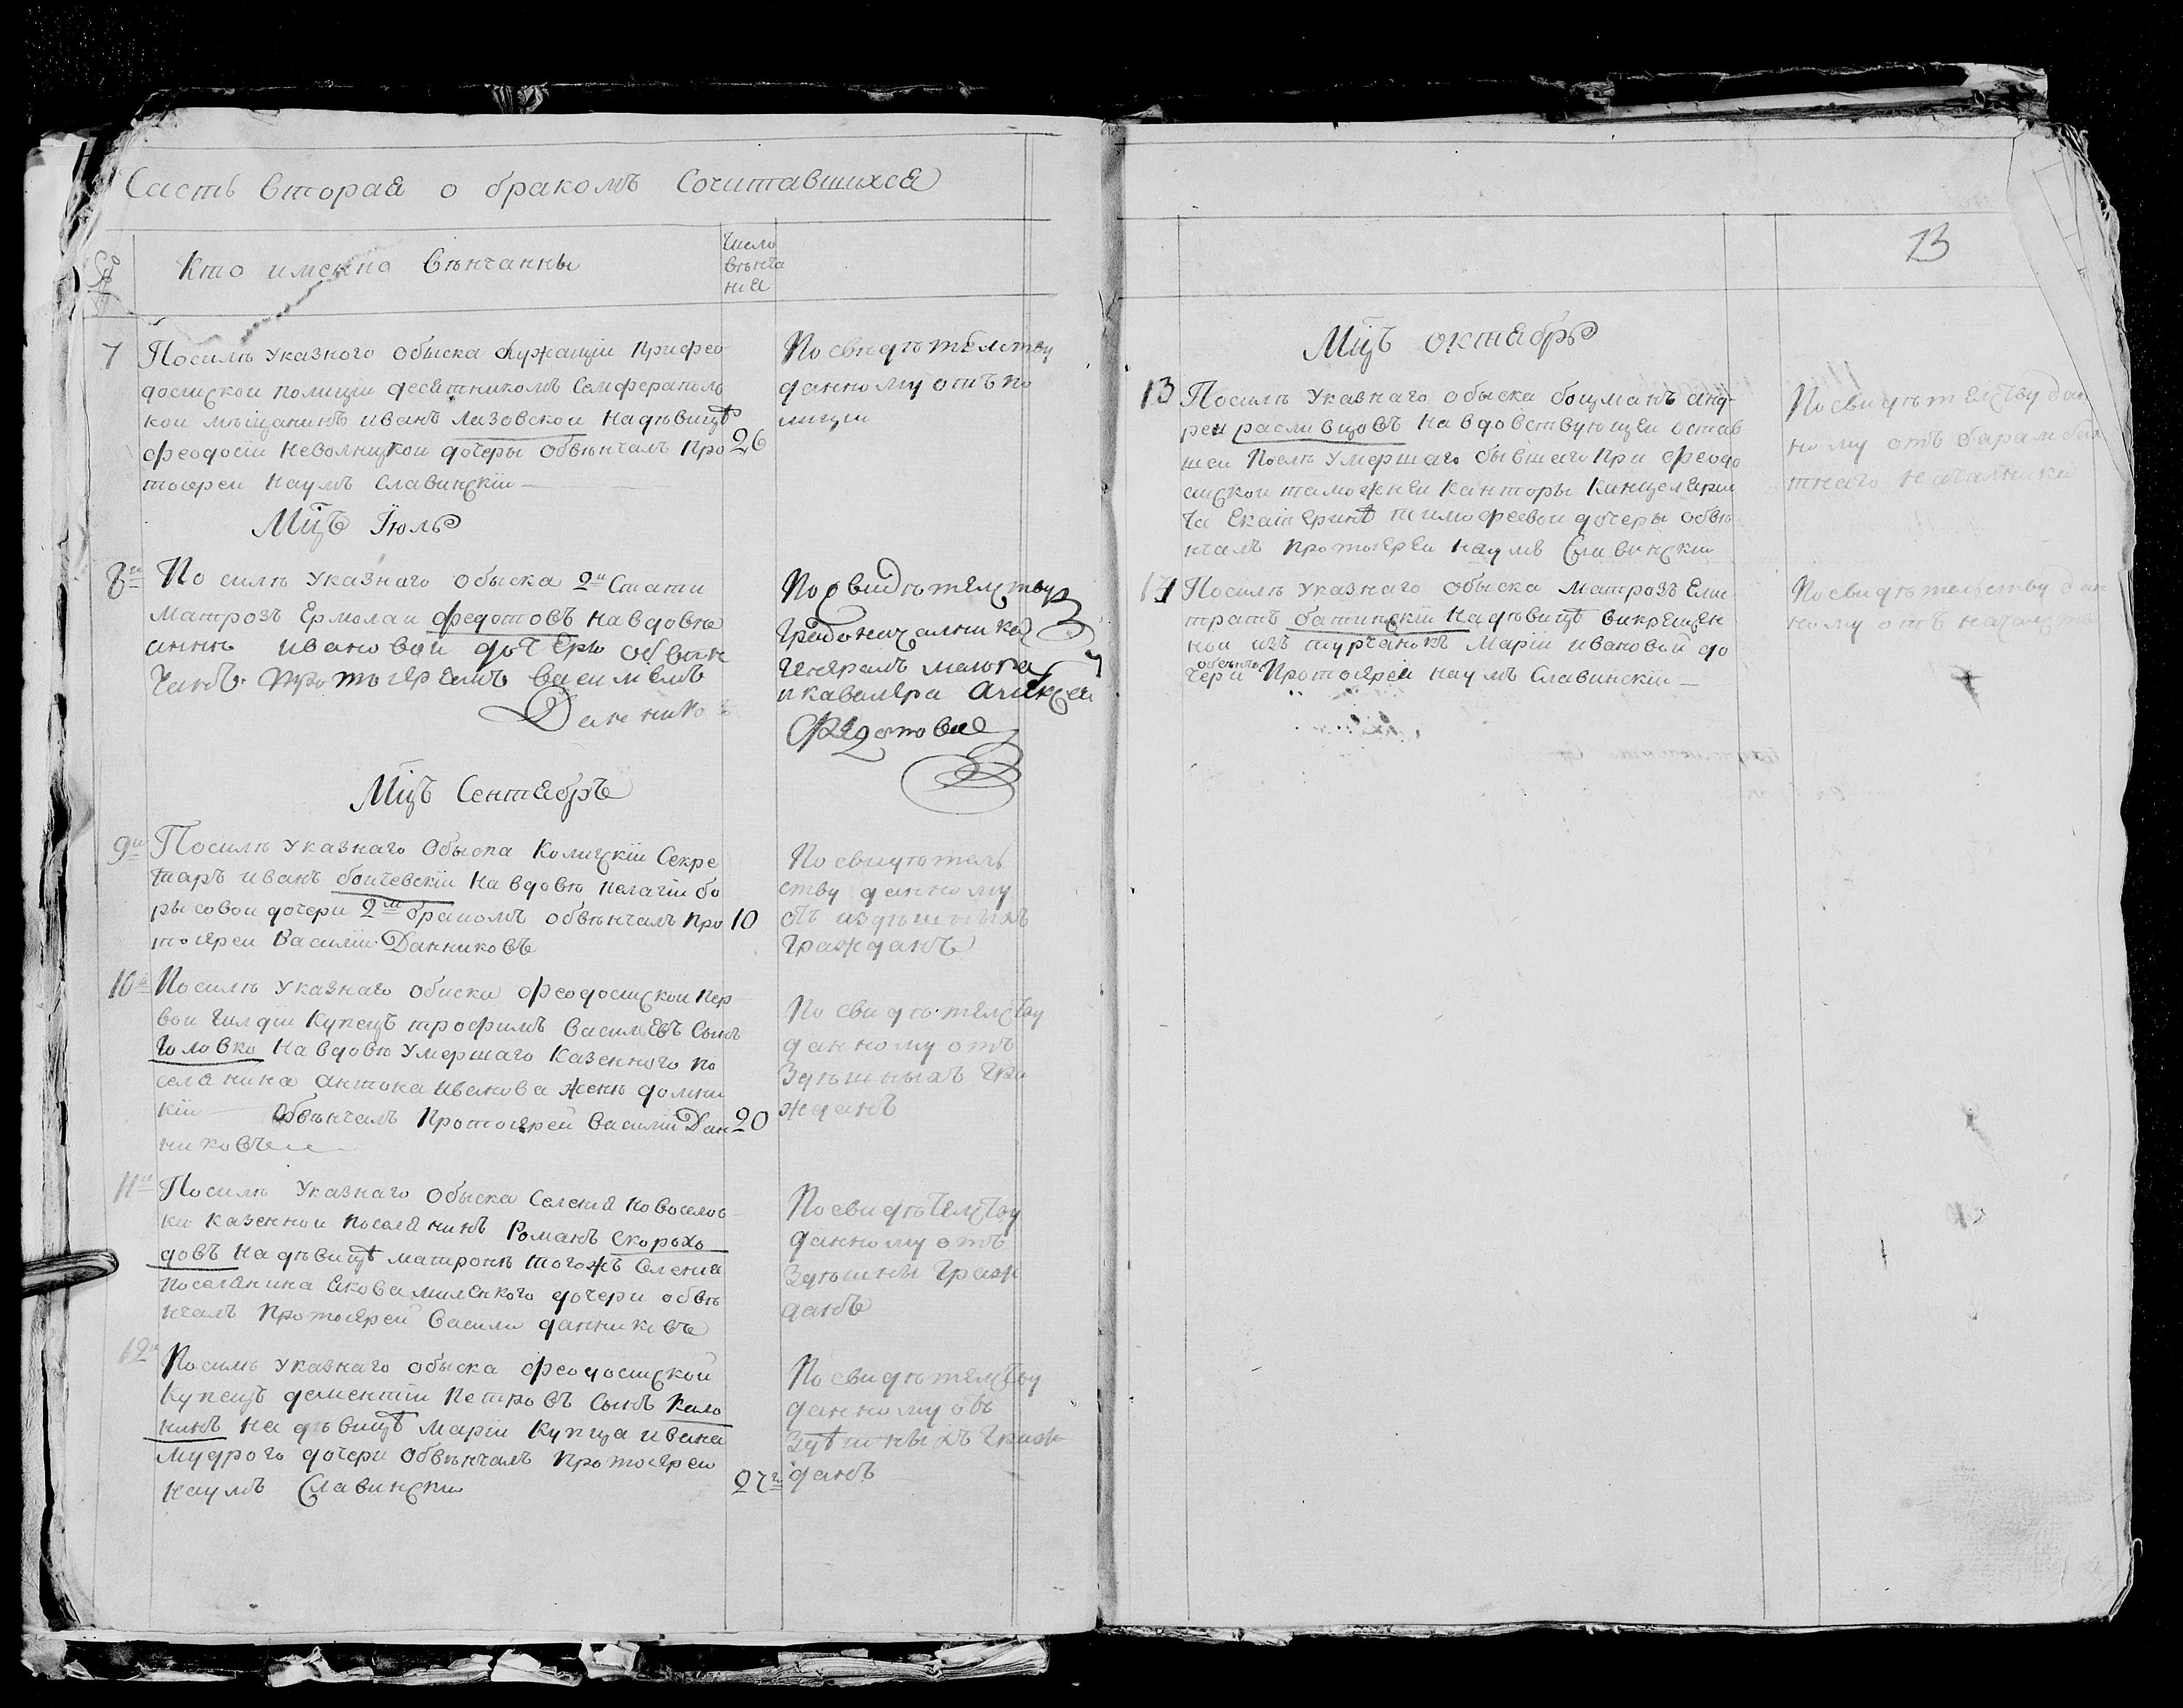 Часть вторая о бракомъ Сочитавшихся
Кто именно Вѣнчанны
Число
вѣнча
ния
7
Посилѣ указного обыска служащіи Прифео
досискои полиціи десятникомъ Симферополс
кои мѣщанинъ иванъ Лазовскои надѣвицѣ
феодосіи Неволницкои дочеры обвѣнчалъ Про
26
тоіереи Наумъ Славинскіи
По свидѣтелству
данному отъ по
лиции
Мцъ Іюль
8й По силѣ указнаго обыска 2й Стати
матрозъ Ермолаи федотовъ на вдове
аннѣ ивановои дочерю обвѣн
чанъ протоіереемъ василіемъ
Даннико
По свидѣтелству
Градоначалника
Генералъ маиора
и кавалера Алексея
Федотова
Мцъ Сентябрь
9й Посилѣ указнаго Обыска Колижскіи Секре
тарь иванъ боичевскіи на вдовѣ пелагіи бо
рысовои дочери 2мъ бракомъ обвѣнчалъ про
10
тоіереи Василіи Данниковъ
По свидѣтель
ству данному
отъ издѣшныхъ
гражданъ
10й Посилѣ указнаго обыска феодосискои пер
вои Гилдіи Купецъ трофимъ Василіевъ Сынъ
Головко на вдовѣ умершаго Казенного по
селянина антона иванова женѣ домни
кіи обвѣнчалъ Протоіереи василіи Дан
20
никовъ
По свидѣтелству
данному отъ
Здѣшныхъ гра
жданъ
11й Посилѣ указнаго обыска Селенія новоселов
ки казеннои поселянинъ Романъ Скорохо
довъ на дѣвицѣ матронѣ тогожъ Селенія
поселянина якова миленкого дочери обвѣ
нчалъ протоіереи Василии данниковъ
Посвидѣтелству
данному отъ
Здѣшны граж
данъ
12й
Посилѣ указнаго обыска феодосискои
Купецъ дементіи Петровъ Сынъ Кало
нинъ на дѣвицѣ маріи Купца ивана
мудрого дочери обвѣнчалъ протоіереи
наумъ Славински
27
По свидѣтелству
данному отъ
Здѣшныхъ граж
данъ
13
Мцъ октябрь
13 Посилѣ указнаго обыска боцманъ анд
реи расливцовъ на вдовствующеи остав
шеи послѣ умершаго бывшаго при феодо
сискои таможнеи Канторы Канцеляри
ста Екатеринѣ тимофеевои дочеры обвѣ
нчалъ протоіереи наумъ Славинскіи
Посвидѣтелству дан
ному отъ
тнаго началника
14 Посилѣ указнаго обыска матрозъ Елис
тратъ батинскіи на дѣвицѣ викрещен
нои изъ турчанокъ маріи ивановой до
обвѣнча
чери Протоіереи наумъ Славинскіи
По свидѣтельству дан
ному отъ началства